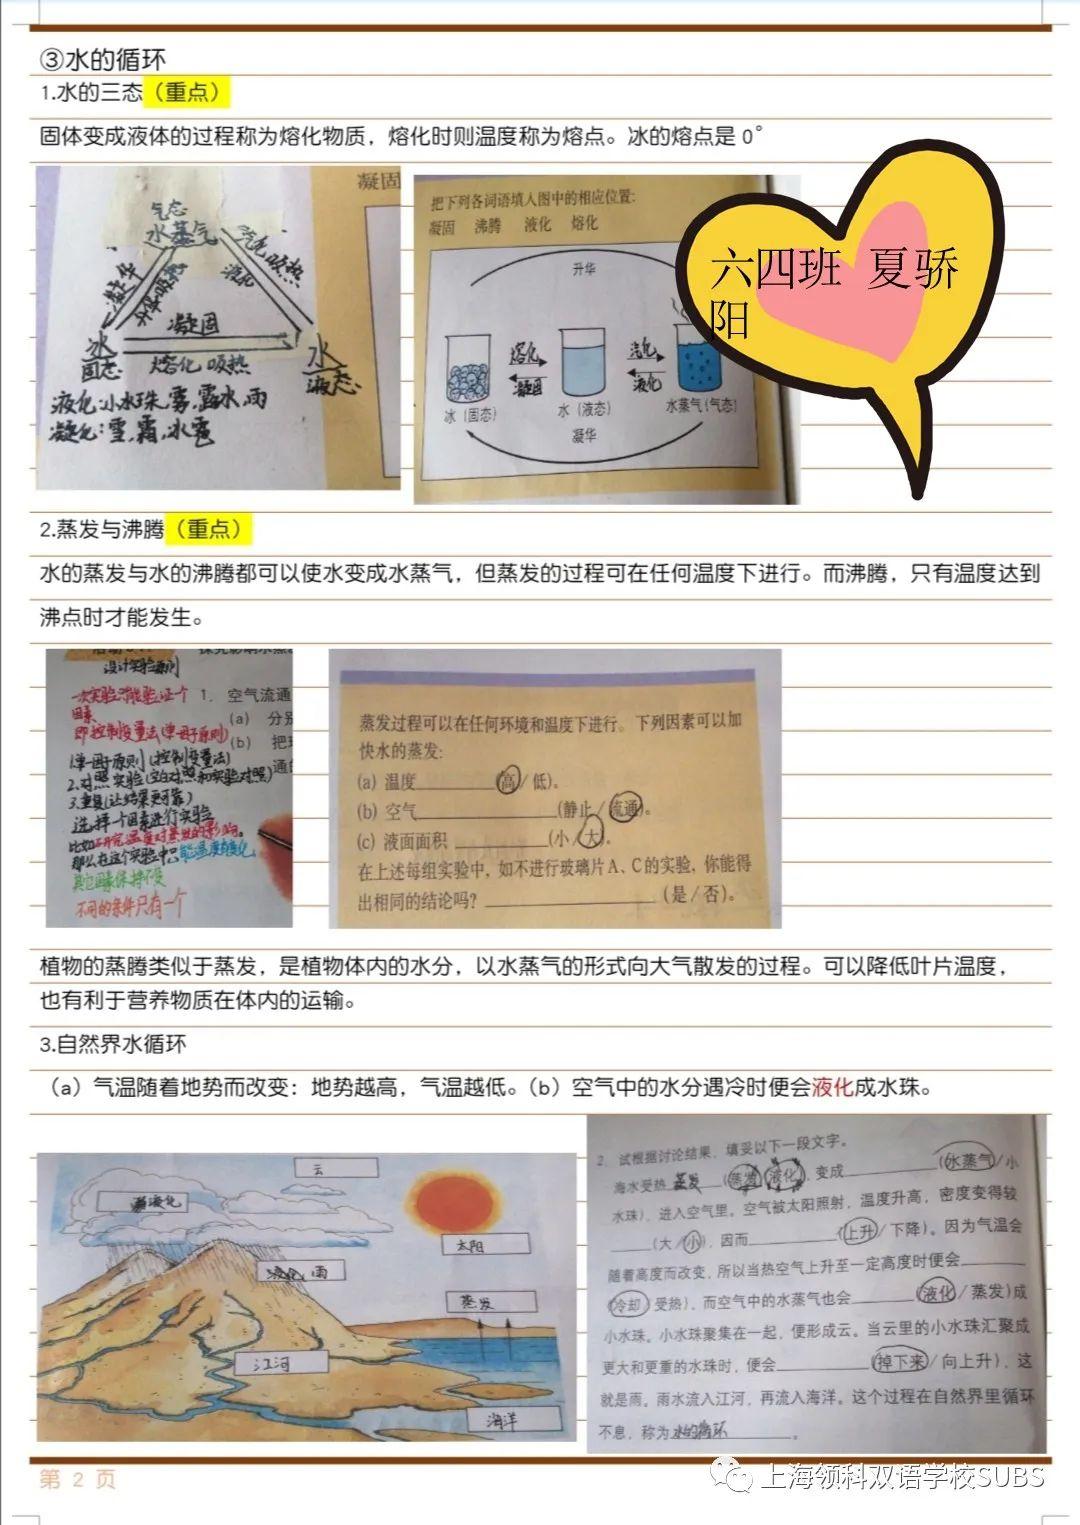 ③水的循环
1.水的三态（重点）
固体变成液体的过程称为熔化物质，熔化时则温度称为熔点。冰的熔点是 0°
气态
水蒸气
汽化 吸热
液化
凝华
升华 吸热
凝固
冰
固态
熔化 吸热
水
液态
液化:小水珠,雾,露水,雨
凝华:雪,霜,冰雹
凝固
把下列各词语填入图中的相应位置:
凝固 沸腾 液化 熔化
升华
熔化
凝固
汽化
液化
冰（固态）
水（液态）
水蒸气（气态）
凝华
六四班 夏骄
阳
2.蒸发与沸腾（重点）
水的蒸发与水的沸腾都可以使水变成水蒸气，但蒸发的过程可在任何温度下进行。而沸腾，只有温度达到
沸点时才能发生。
设计实验原则
一次实验只能验证一个
因素
即控制变量法(单一因子原则)
1.单一因子原则(控制变量法)
2.对照实验(空白对照和实验对照)
3.重复(让结果更可靠)
选择一个因素进行实验
比如研究温度对蒸发的影响。
那么在这个实验中只能温度有变化
其它因素保持不变
不同的条件只有一个
1. 空气流通
(a) 分别
(b) 把
通的
蒸发过程可以在任何环境和温度下进行。下列因素可以加
快水的蒸发:
(a) 温度________(高/低)。
(b) 空气________(静止/流通)。
(c) 液面面积________(小/大)。
在上述每组实验中，如不进行玻璃片A、C的实验，你能得
出相同的结论吗？________(是/否)。
植物的蒸腾类似于蒸发，是植物体内的水分，以水蒸气的形式向大气散发的过程。可以降低叶片温度，
也有利于营养物质在体内的运输。
3.自然界水循环
（a）气温随着地势而改变：地势越高，气温越低。（b）空气中的水分遇冷时便会液化成水珠。
云
液化
太阳
液化,雨
蒸发
江河
海洋
2. 试根据讨论结果，填妥以下一段文字。
海水受热 蒸发 (蒸发/液化)，变成________(水蒸气/小
水珠)，进入空气里。空气被太阳照射，温度升高，密度变得较
____(大/小)，因而________(上升/下降)。因为气温会
随着高度而改变，所以当热空气上升至一定高度时便会______
(冷却/受热)，而空气中的水蒸气也会______(液化/蒸发)成
小水珠。小水珠聚集在一起，便形成云。当云里的小水珠汇聚成
更大和更重的水珠时，便会________(掉下来/向上升)，这
就是雨。雨水流入江河，再流入海洋。这个过程在自然界里循环
不息，称为 水的循环 。
第 2 页
上海领科双语学校SUBS